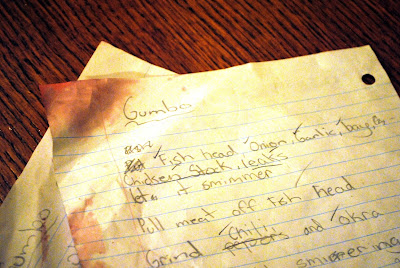 Gumbo
Fish head, Onion, Garlic, bay,
Chicken Stock, leaks
smimmer
Pull meat off Fish head
Grind Chili, and Okra
smimmer
Gumbo